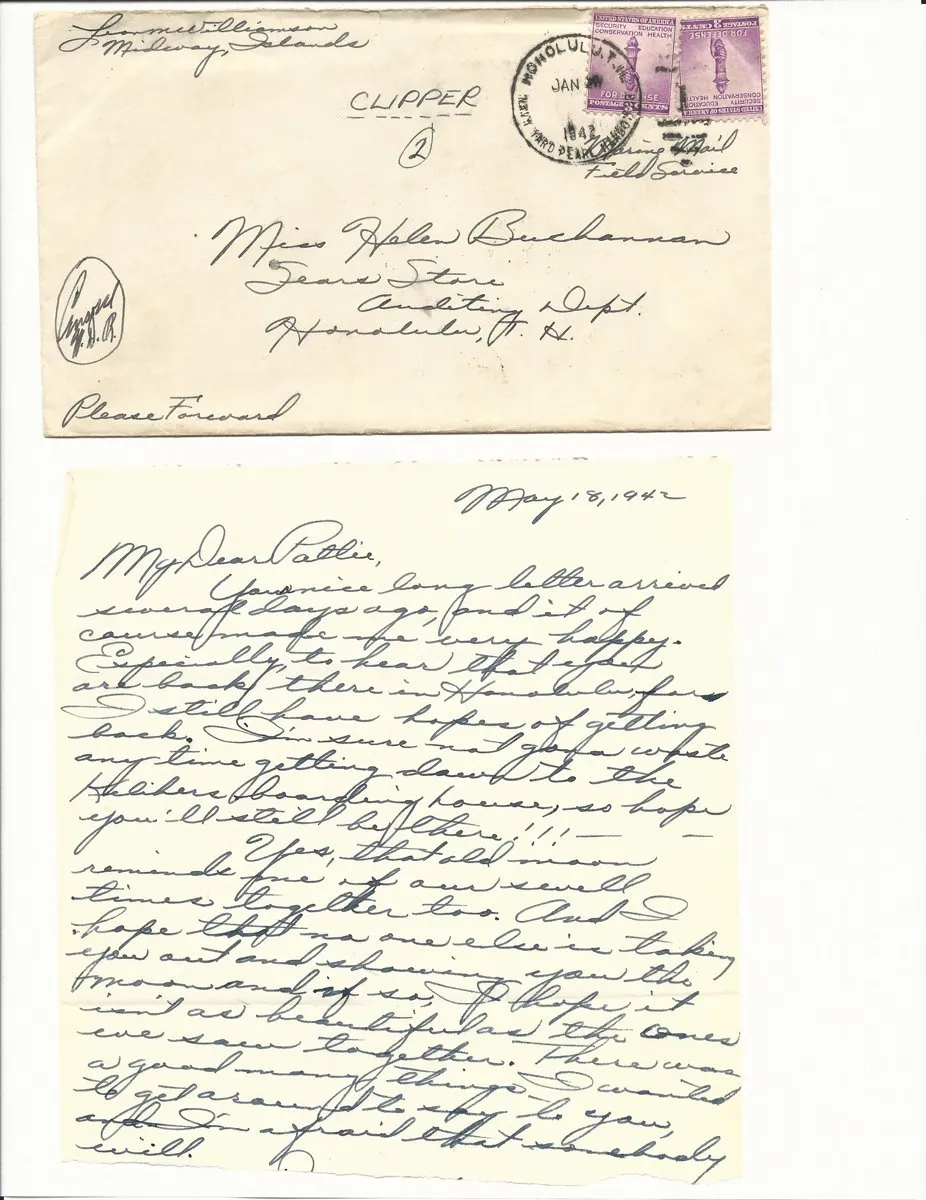 Leon McWilliamson
Midway, Islands
CLIPPER
2
HONOLULU, T.H.
JAN
1942
NAVY YARD PEARL HARBOR
UNITED STATES OF AMERICA
SECURITY EDUCATION
CONSERVATION HEALTH
FOR DEFENSE
POSTAGE 3 CENTS
UNITED STATES OF AMERICA
SECURITY EDUCATION
CONSERVATION HEALTH
FOR DEFENSE
POSTAGE 3 CENTS
Marine Mail
Field Service
Miss Helen Buchannan
Sears Store
Auditing Dept.
Honolulu, T. H.
Please Forward
May 18, 1942
My Dear Pattie,
Your nice long letter arrived
several days ago, and it of
course made me very happy.
Especially, to hear that you
are back there in Honolulu, for
I still have hopes of getting
back. I'm sure not gona waste
any time getting down to the
boarding house, so hope
you'll still be there!!! — —
Yes, that old moon
reminds me of our swell
times together too. And I
hope that no one else is taking
you out and showing you the
moon and if so, I hope it
isn't as beautiful as the ones
we saw together. There was
a good many things I wanted
to get around to say to you,
and I'm afraid that somebody
will.